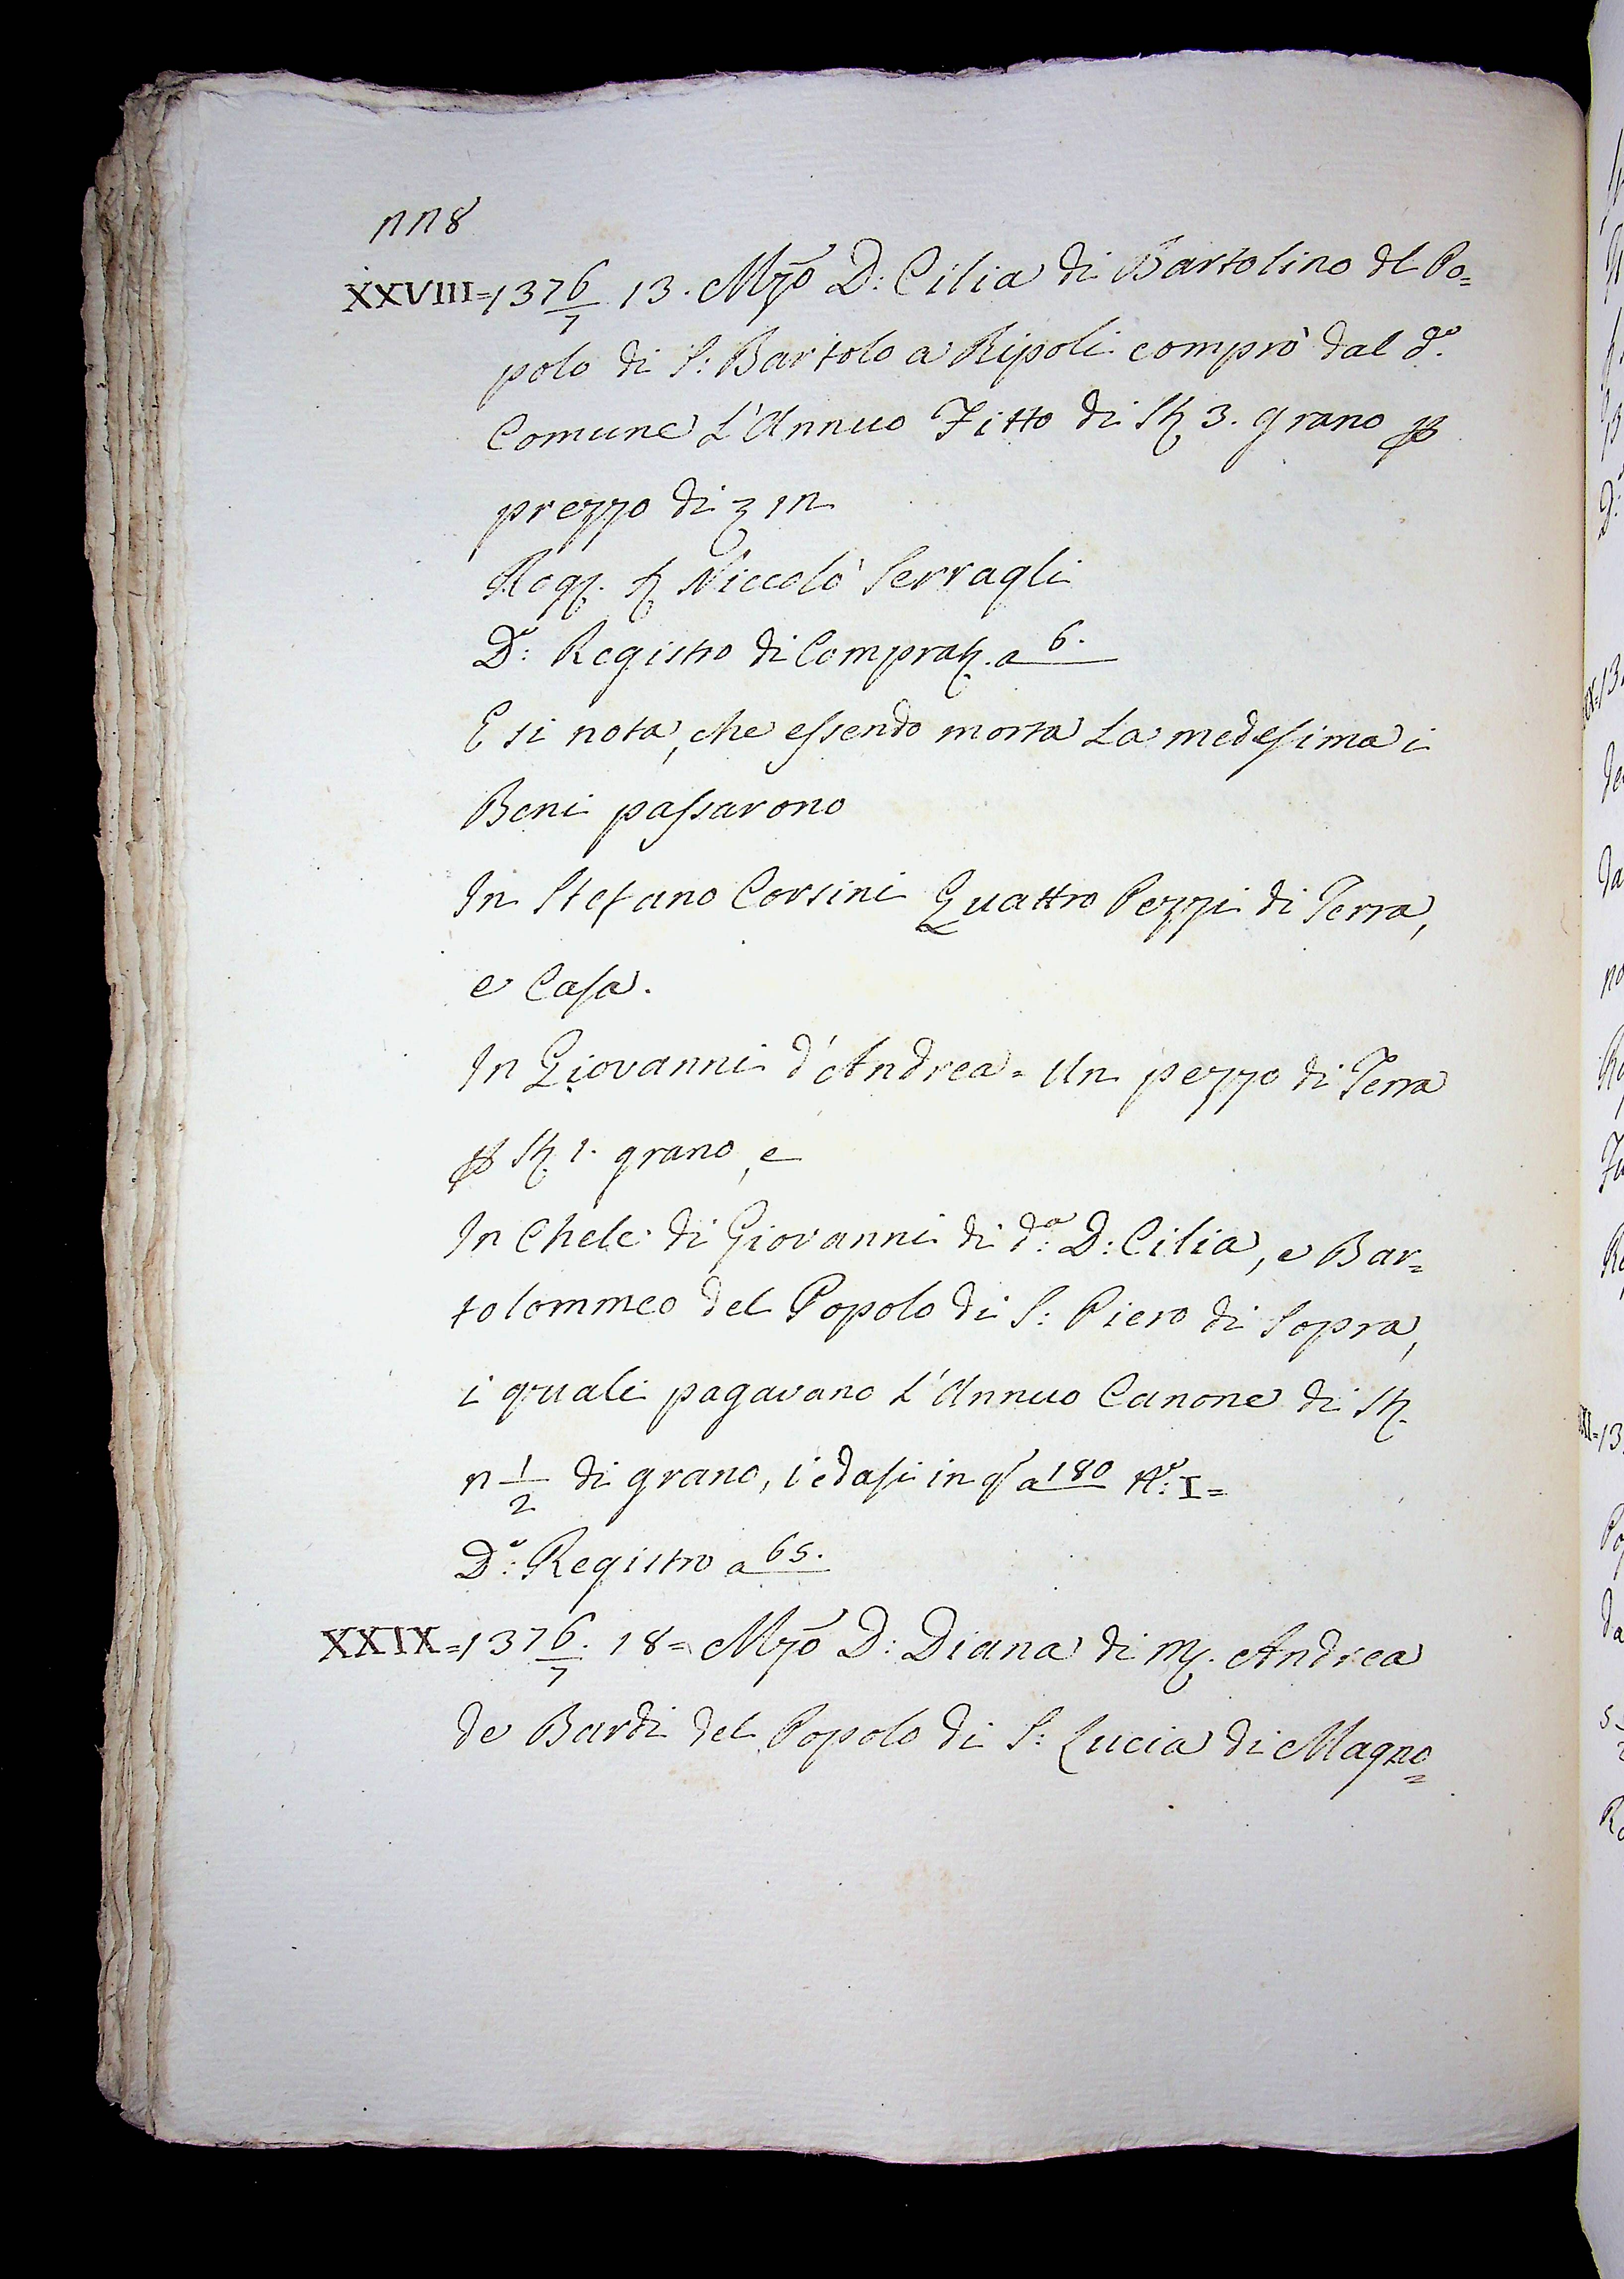 228
XXVIII=1376/7 13. Mzo D: Cilia di Bartolino del Po=
polo di S: Bartolo a Ripoli comprò dal do.
Comune L'Annuo Fitto di St 3. grano p
prezzo di 12
Rog. Niccolò Serragli
Do: Registro di Comprat. a 6.
E si nota, che essendo morta La medesima i
Beni passarono
In Stefano Corsini Quattro Pezzi di Terra,
e Casa.
In Giovanni d'Andrea = Un pezzo di Terra
p St 1. grano, e
In Chele di Giovanni di da: D: Cilia, e Bar=
tolommeo del Popolo di S: Piero di Sopra,
i quali pagavano L'Annuo Canone di St.
2 1/2 di grano, vedasi in qo a 180 No: I=
Do: Registro a 65.
XXIX=1376/7. 18= Mzo D: Diana di M. Andrea
de Bardi del Popolo di S: Lucia di Magno=